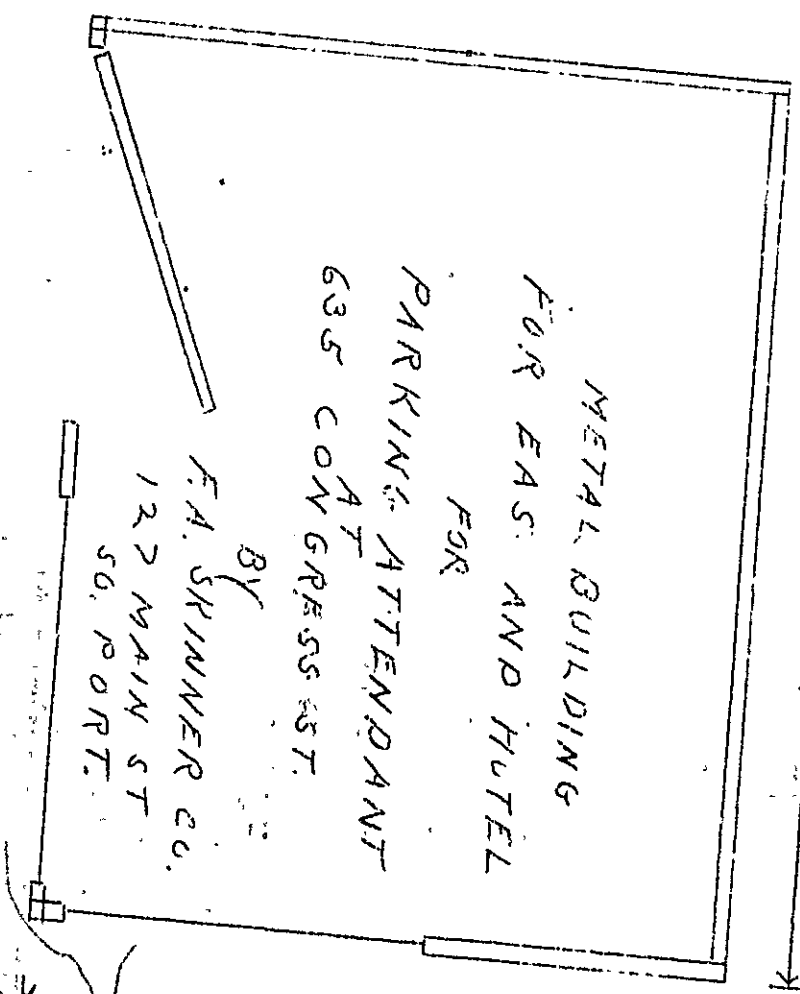 METAL BUILDING
FOR EAS. AND HOTEL
FOR
PARKING ATTENDANT
AT
635 CONGRESS ST.
BY
F.A. SKINNER CO.
127 MAIN ST
SO. PORT.